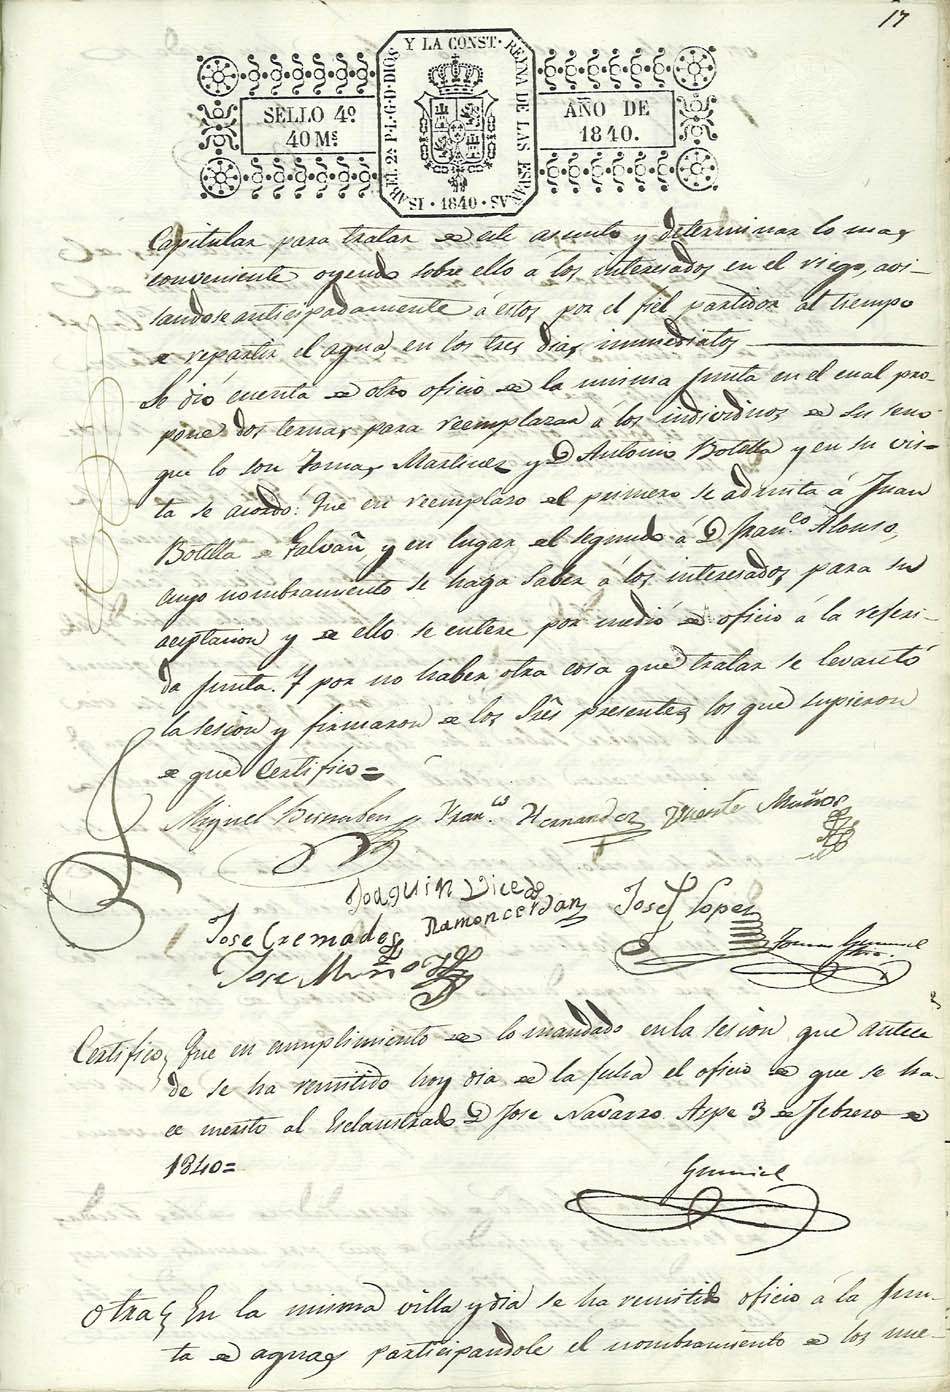 17
ISABEL 2ª P.L.G.D.DIOS Y LA CONST. REYNA DE LAS ESPAÑAS · 1840 ·
SELLO 4º
40 Ms
AÑO DE
1840.
Capitular para tratar de este asunto y determinar lo mas
conveniente oyendo sobre ello á los interesados en el riego, avi-
sandose anticipadamente á estos por el fiel partidor al tiempo
de repartir el agua, en los tres dias inmediatos
Se dió cuenta de otro oficio de la misma Junta en el cual pro-
pone dos ternas para reemplazar á los individuos de su seno
que lo son Tomas Martinez y D. Antonio Botella y en su vis=
ta se acordó: Que en reemplazo del primero se admita á Juan
Botella de Galvañ, y en lugar del segundo á D. Fran.co Alonso,
cuyo nombramiento se haga saber á los interesados para su
aceptacion y de ello se entere por medio de oficio á la referi-
da Junta. Y por no haber otra cosa que tratar se levantó
la sesion y firmaron de los Sres presentes los que supieron
de que Certifico =
Miguel Fran.co Hernandez Vicente Muños
Joaquin Vicedo
Jose Cremades Ramon cerdan Josef Lopez
Jose Muño Tomas Gumiel
Certifico, Que en cumplimiento de lo mandado en la sesion que antece
de se ha remitido hoy dia de la fecha el oficio de que se ha-
ce merito al Esclaustrado D. Jose Navarro. Aspe 3 de Febrero de
1840=
Gumiel
Otra, En la misma villa y dia se ha remitido oficio á la Jun-
ta de aguas participandole el nombramiento de los nue-